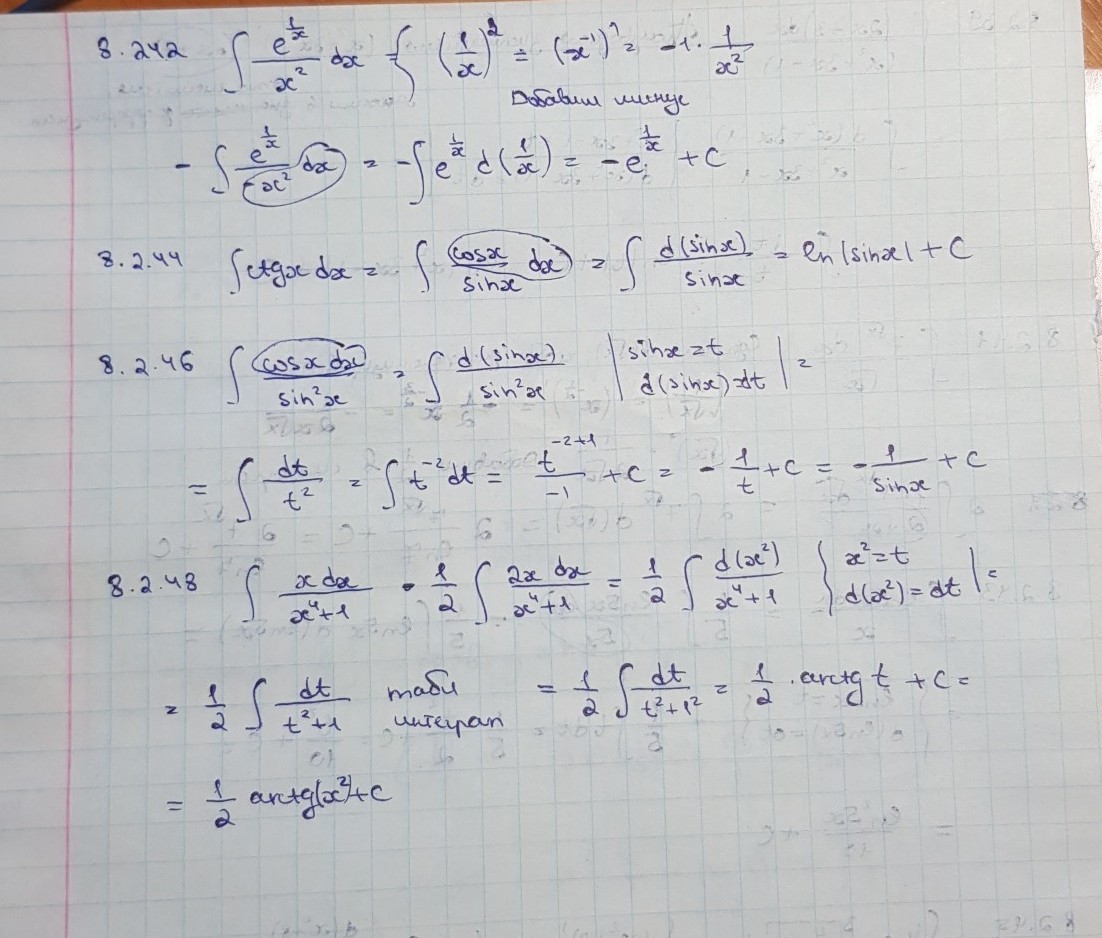 8.242 ∫ e^(1/x)/x² dx = { (1/x)² = (x⁻¹)' = -1 · 1/x²
Добавим минус
- ∫ e^(1/x)/(-x²) dx = -∫ e^(1/x) d(1/x) = -e^(1/x) + C
8.2.44 ∫ctgx dx = ∫ cosx/sinx dx = ∫ d(sinx)/sinx = ln|sinx| + C
8.2.46 ∫ cosx dx/sin²x = ∫ d(sinx)/sin²x | sinx = t
d(sinx) = dt | =
= ∫ dt/t² = ∫ t⁻² dt = t^(-2+1)/(-1) + C = - 1/t + C = - 1/sinx + C
8.2.48 ∫ x dx/(x⁴+1) = 1/2 ∫ 2x dx/(x⁴+1) = 1/2 ∫ d(x²)/(x⁴+1) { x² = t
d(x²) = dt | =
= 1/2 ∫ dt/(t²+1) табл = 1/2 ∫ dt/(t²+1²) = 1/2 · arctg t + C =
интеграл
= 1/2 arctg(x²)+C